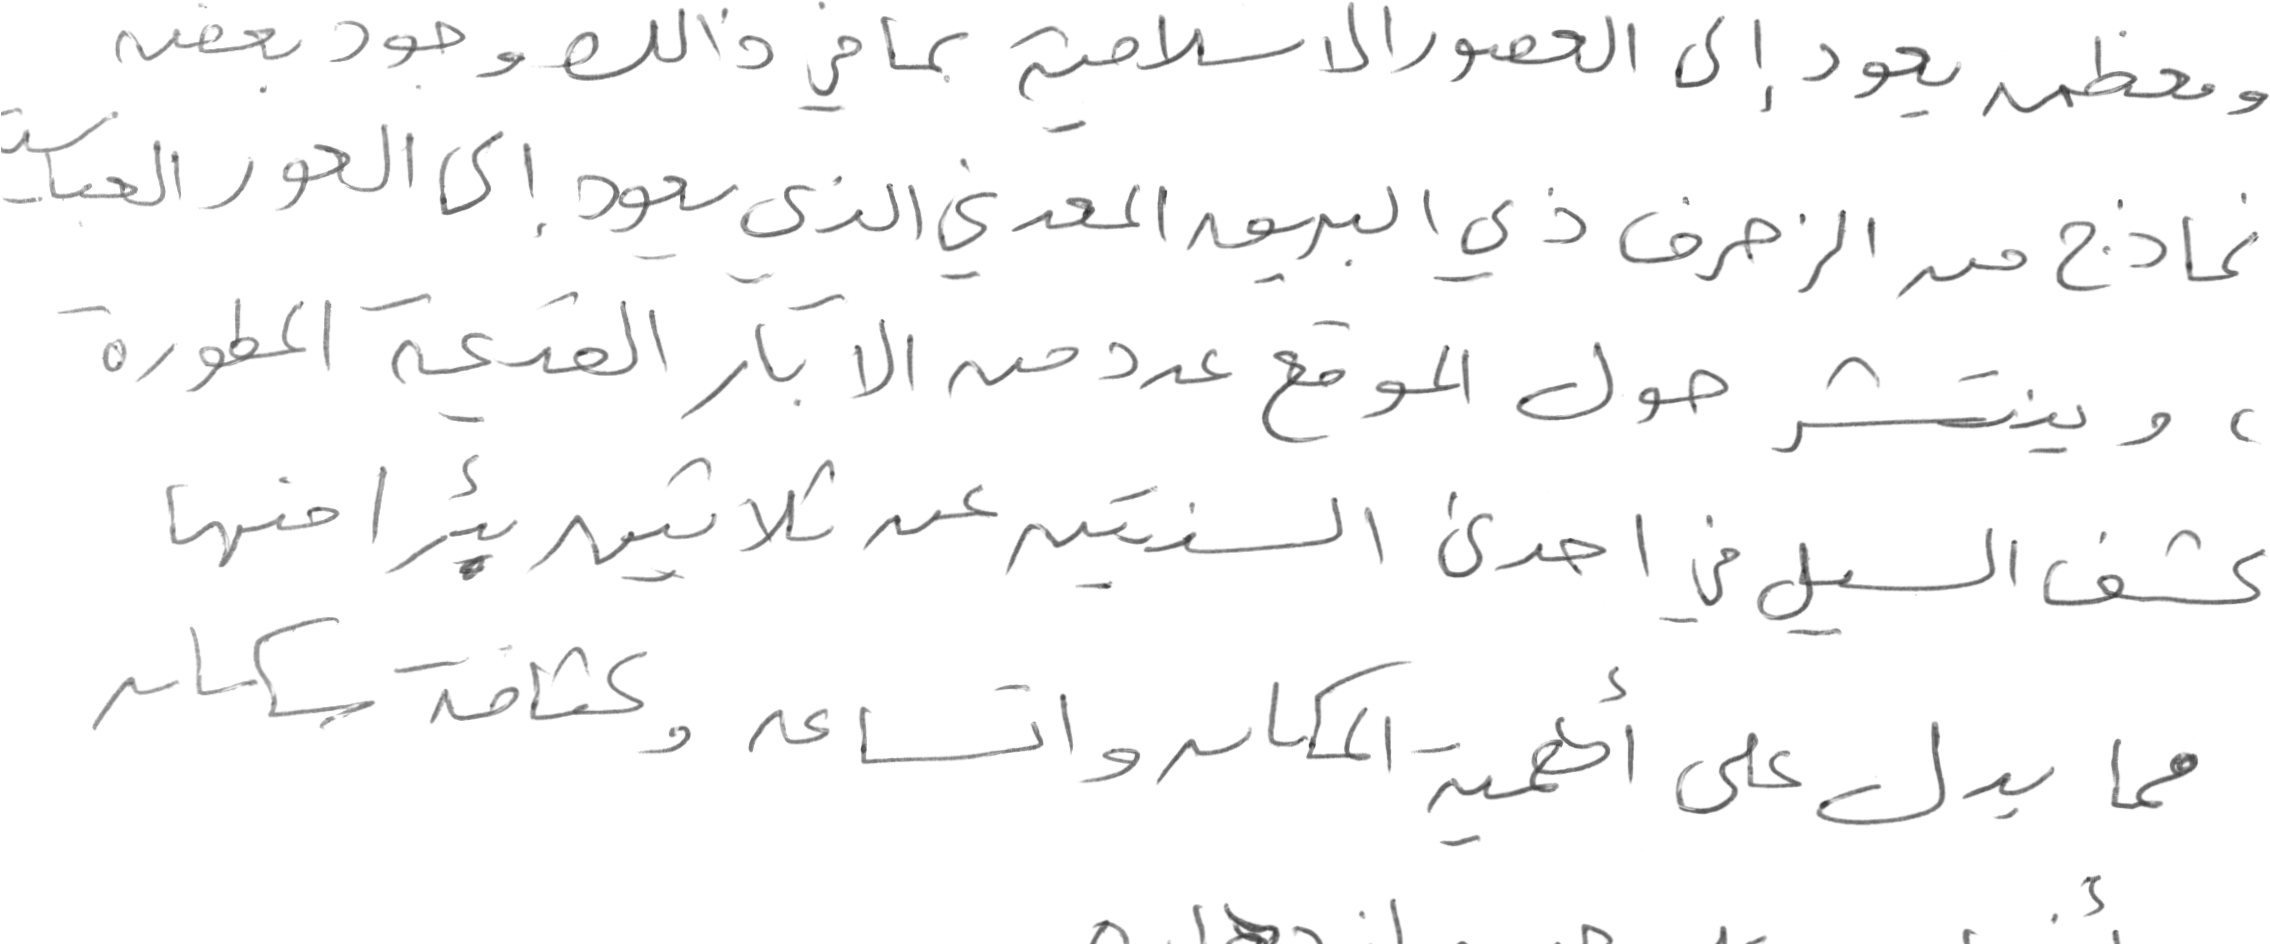 ومعظمه يعود إلى العصور الاسلامية بما في ذالك وجود بعض
نماذج من الزخرف ذي البريق المعدني الذي يعود إلى العور العباسية
، وينتشر حول الموقع عدد من الآبار القديمة المطورة
كشف السيل في احدى السنتين عن ثلاثين بئرا منها
مما يدل على أهمية المكان واتساعه وكثافة سكانه